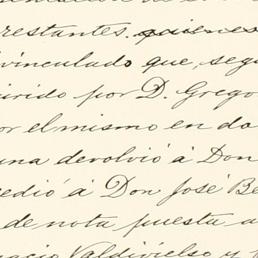 restantes. quienes
vinculado que, segu
uirido por D. Grego
or el mismo en do
una devolvió á Don
edió á Don José Be
de nota puesta a
nacio Valdivielso y p